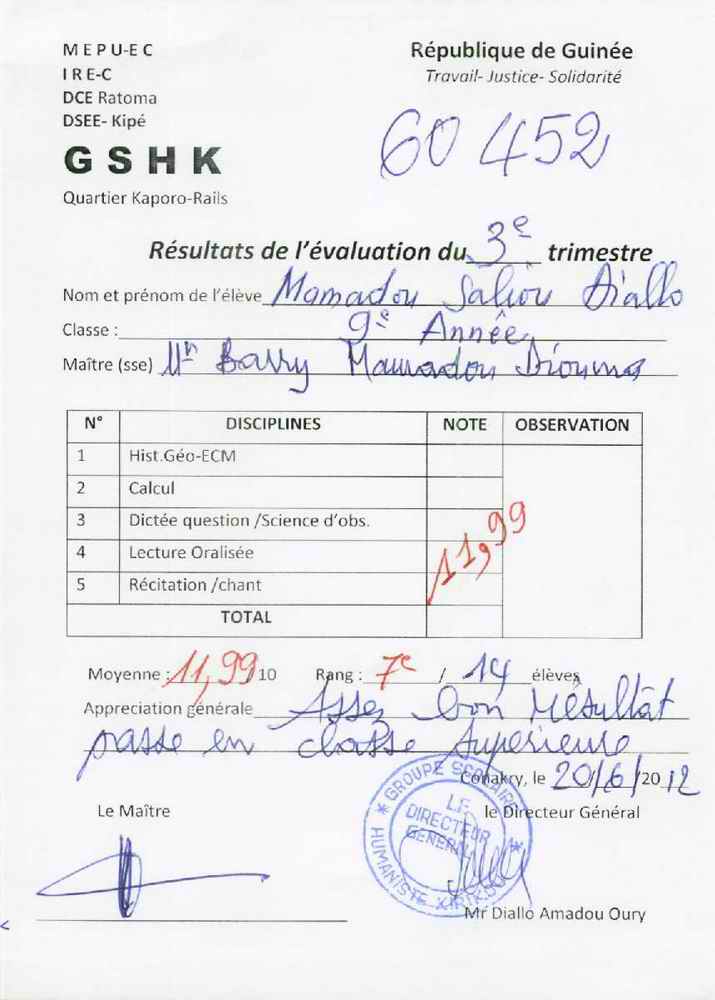 M E P U-E C
I R E-C
DCE Ratoma
DSEE- Kipé
G S H K
Quartier Kaporo-Rails
République de Guinée
Travail- Justice- Solidarité
60 452
Résultats de l'évaluation du 3e trimestre
Nom et prénom de l'élève Mamadou Saliou Diallo
Classe : 9e Année
Maître (sse) Mr Barry Mamadou Diouma
N° DISCIPLINES NOTE OBSERVATION
1 Hist.Géo-ECM
2 Calcul
3 Dictée question /Science d'obs.
4 Lecture Oralisée
5 Récitation /chant
11,99
TOTAL
Moyenne : 11,99/10 Rang : 7e / 14 élèves
Appreciation générale Assez bon résultat
passe en classe supérieure
Conakry, le 20/6/2012
Le Maître
le Directeur Général
GROUPE SCOLAIRE
LE
DIRECTEUR
GENERAL
HUMANISTE
Mr Diallo Amadou Oury